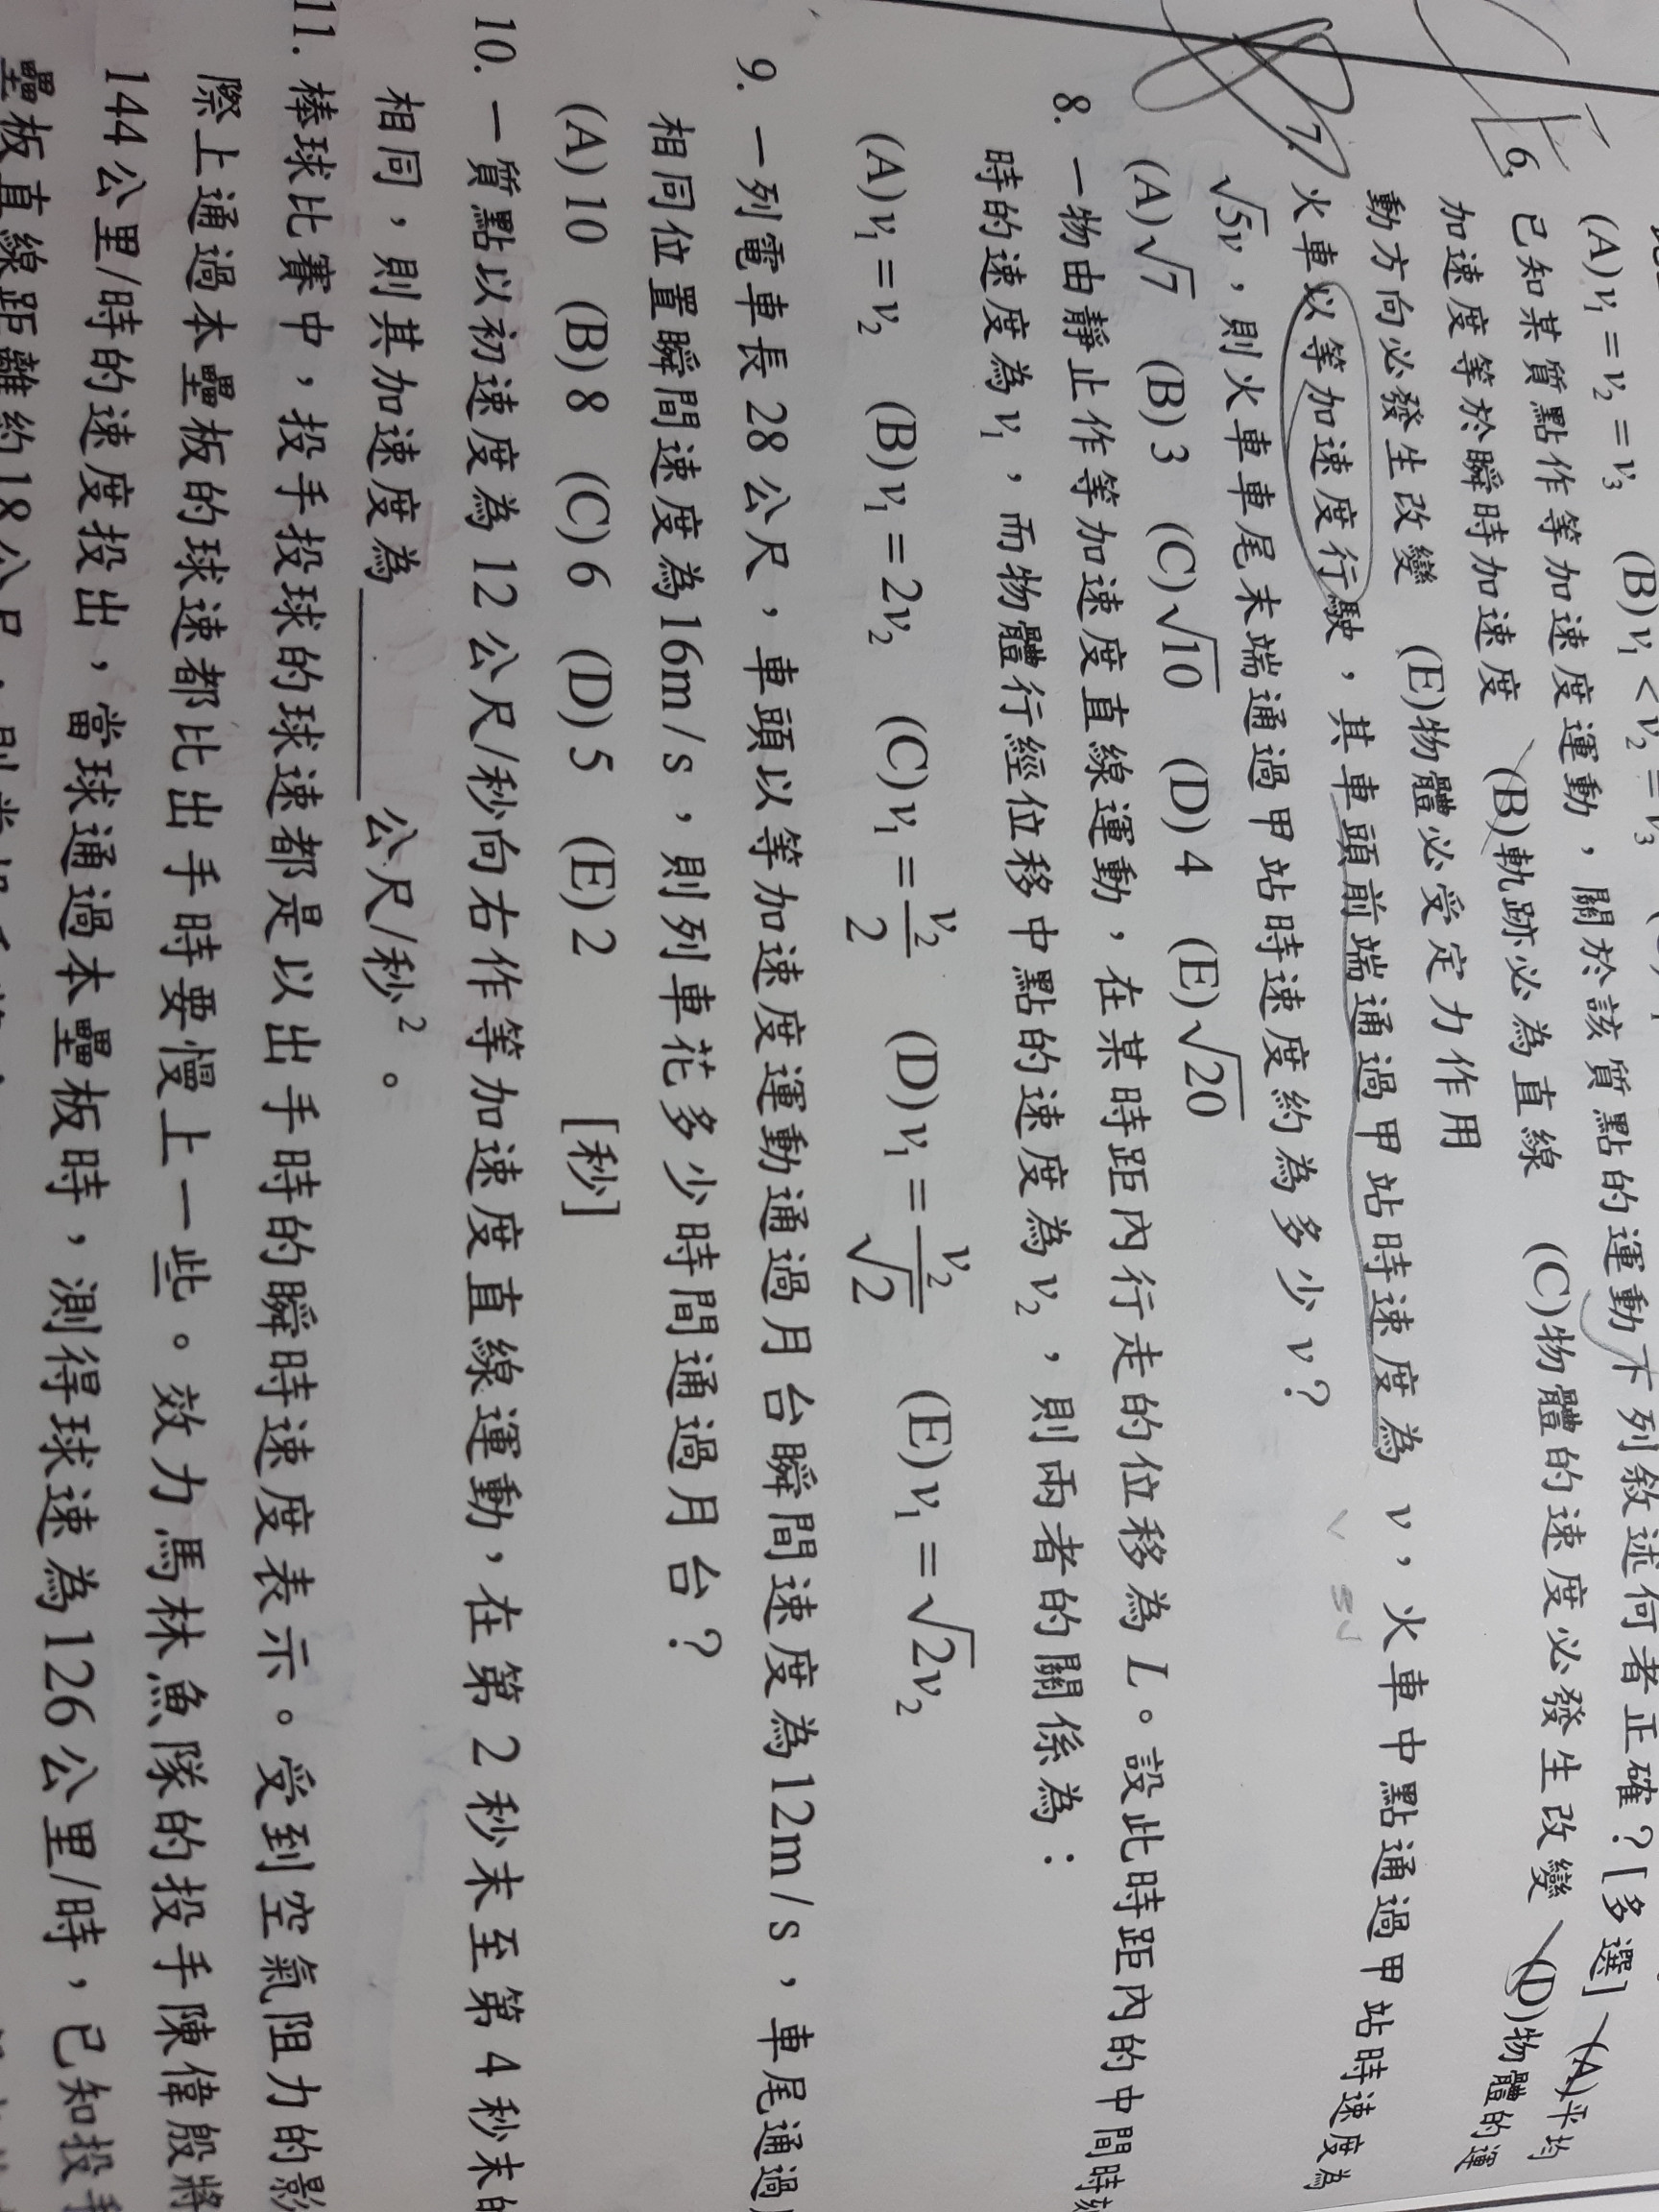 (A) v₁ = v₂ = v₃ (B) v₁ < v₂ = v₃
6. 已知某質點作等加速度運動，關於該質點的運動下列敘述何者正確？[多選] (A)平均
加速度等於瞬時加速度 (B)軌跡必為直線 (C)物體的速度必發生改變 (D)物體的運
動方向必發生改變 (E)物體必受定力作用
7. 火車以等加速度行駛，其車頭前端通過甲站時速度為 v，火車中點通過甲站時速度為
√5v，則火車車尾末端通過甲站時速度約為多少 v？
(A)√7 (B)3 (C)√10 (D)4 (E)√20
8. 一物由靜止作等加速度直線運動，在某時距內行走的位移為 L。設此時距內的中間時刻
時的速度為 v₁，而物體行經位移中點的速度為 v₂，則兩者的關係為：
(A) v₁ = v₂ (B) v₁ = 2v₂ (C) v₁ = v₂/2 (D) v₁ = v₂/√2 (E) v₁ = √2v₂
9. 一列電車長 28 公尺，車頭以等加速度運動通過月台瞬間速度為12m/s，車尾通過
相同位置瞬間速度為16m/s，則列車花多少時間通過月台？
(A)10 (B)8 (C)6 (D)5 (E)2 [秒]
10. 一質點以初速度為 12 公尺/秒向右作等加速度直線運動，在第 2 秒末至第 4 秒末的
相同，則其加速度為＿＿＿＿公尺/秒²。
11. 棒球比賽中，投手投球的球速都是以出手時的瞬時速度表示。受到空氣阻力的影
際上通過本壘板的球速都比出手時要慢上一些。效力馬林魚隊的投手陳偉殷將
144公里/時的速度投出，當球通過本壘板時，測得球速為126公里/時，已知投手
壘板直線距離約18公尺，則